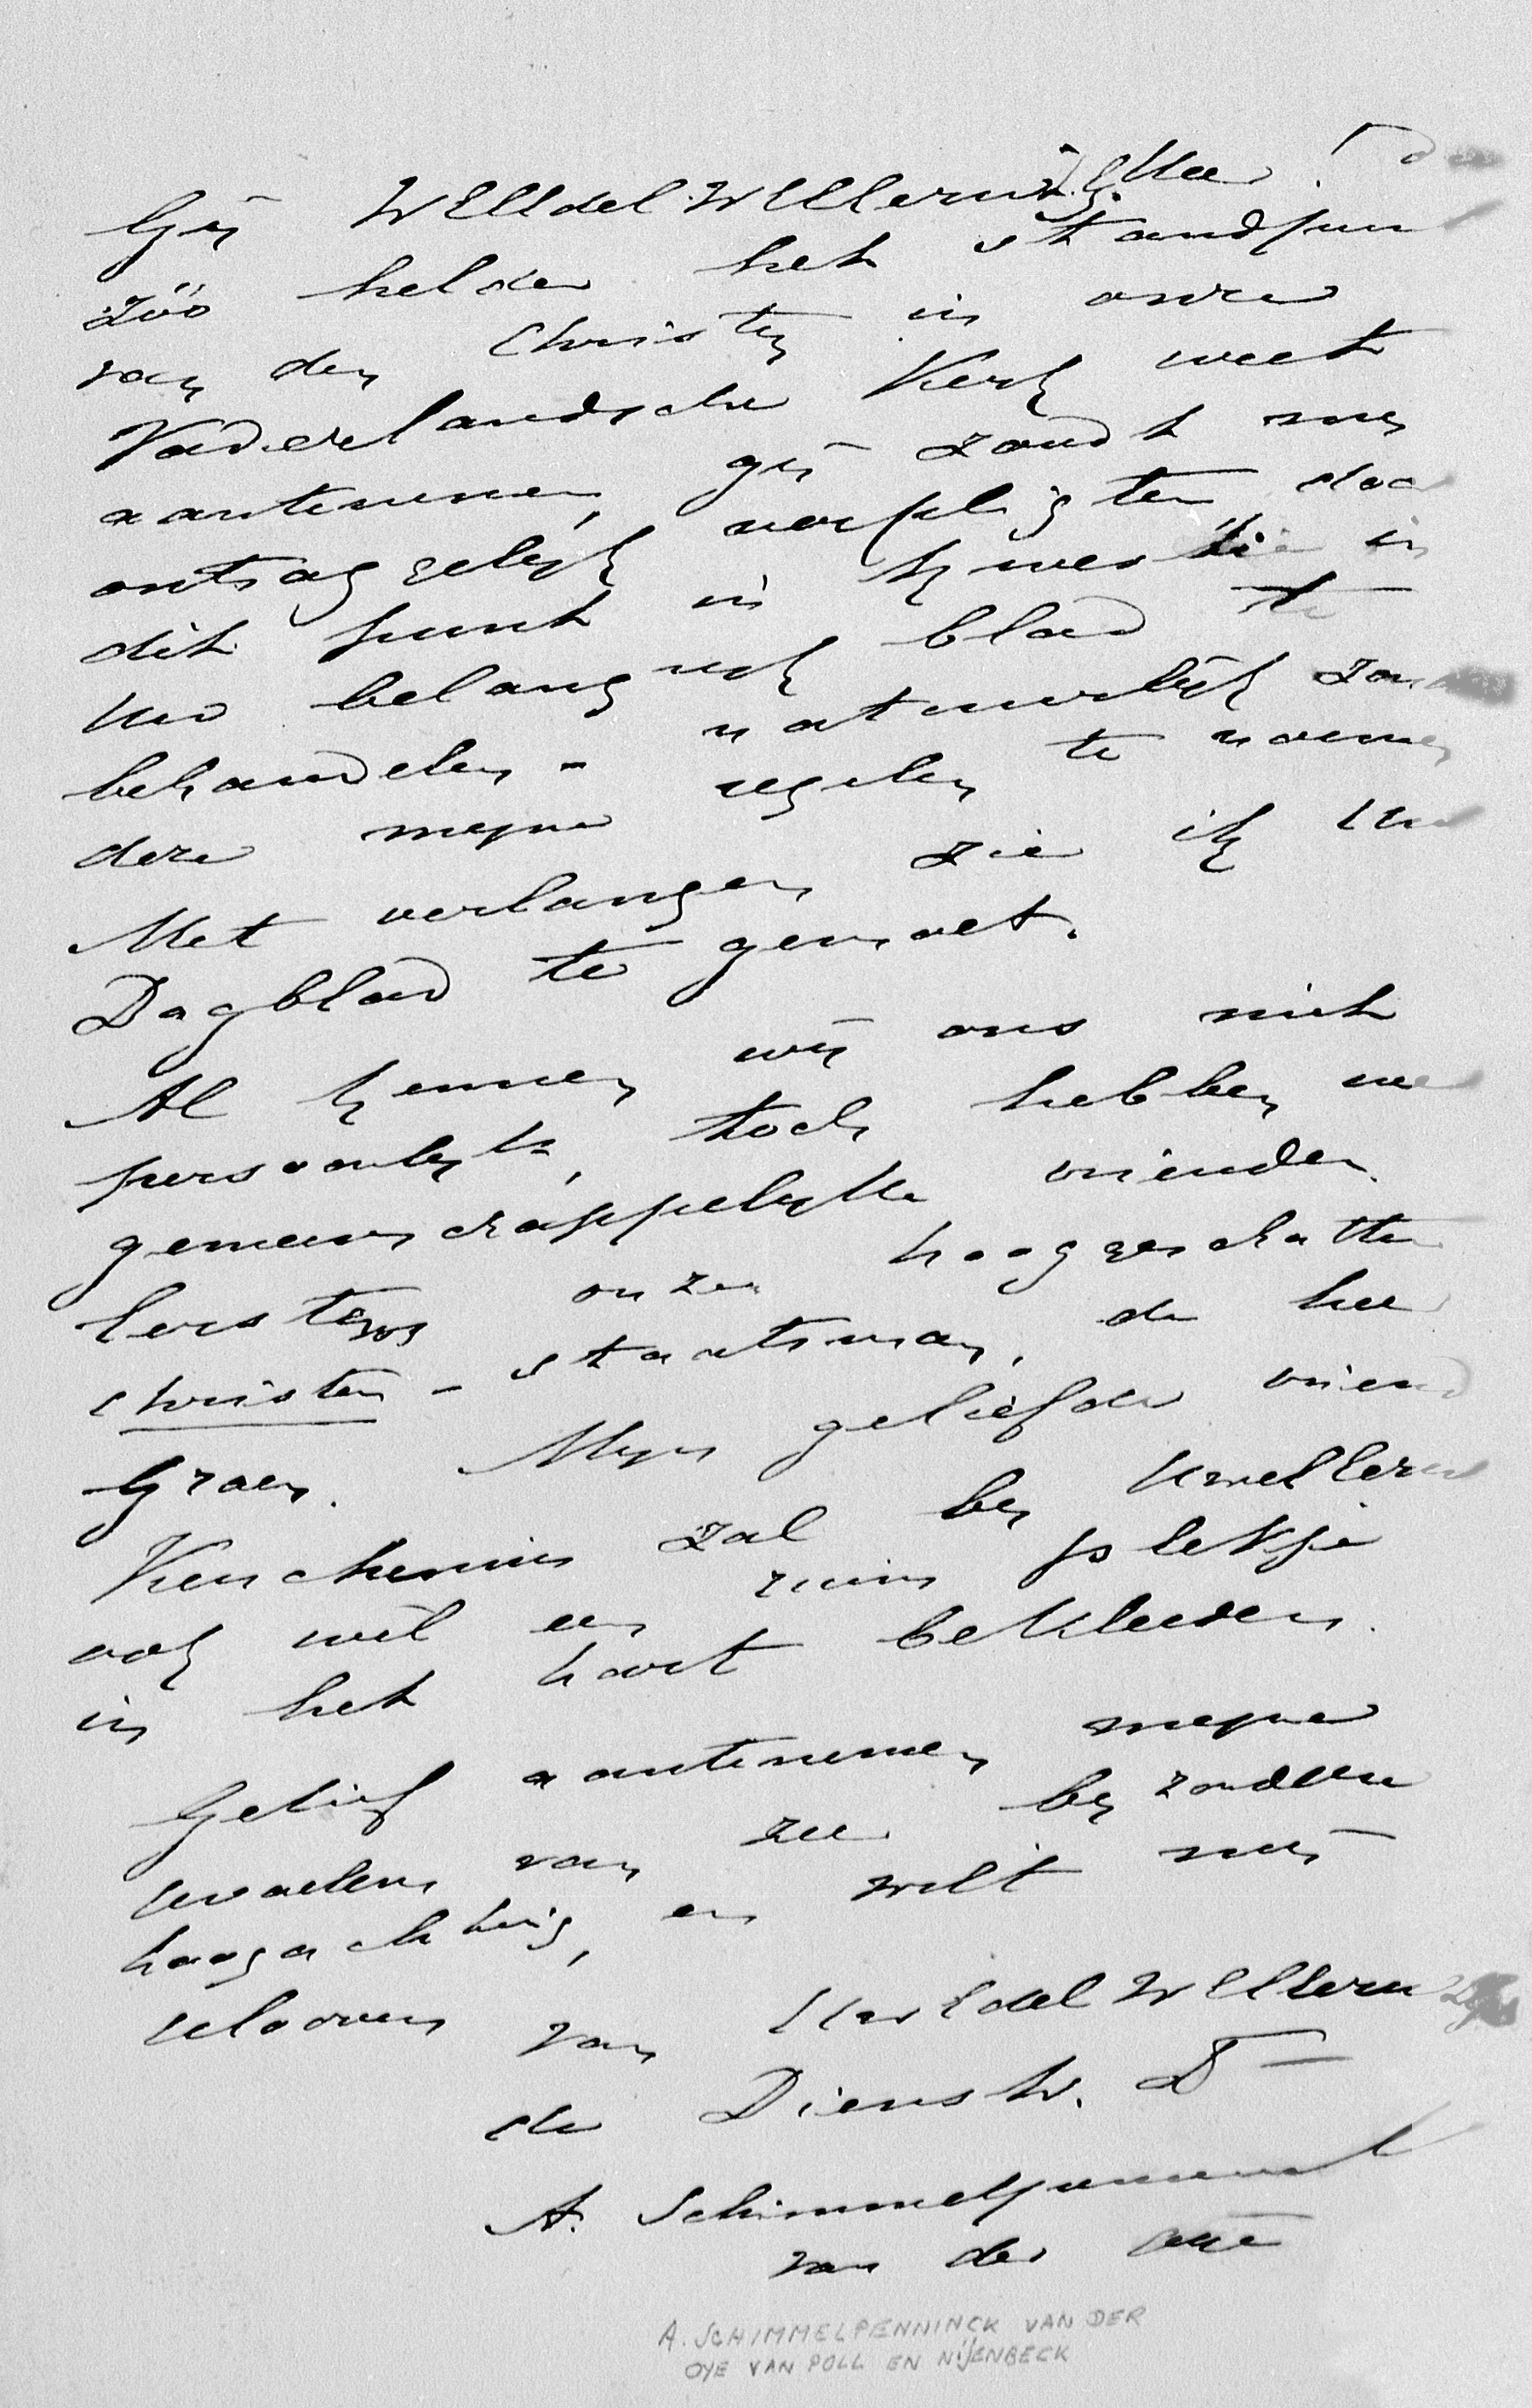 Gij WelEdel WelEerw. Heer! die
zóó helder het standpun
van den Christen in onze
Vaderlandsche Kerk weet
aantenemen, gij zoudt my
ontzaggelyk verpligten door
dit punt in kwestie in
Uw belangryk blad te
behandelen - natuurlijk zon
dere myne regelen te noemen
Met verlangen zie ik Uw
Dagblad te gemoet.
Al kennen wij ons niet
persoonlyk, toch hebben we
gemeenschappelyke vrienden.
Eerstens onze hooggeschatte
christen - staatsman, de heer
Groen. Myn geliefde vriend
Keuchenius zal by UwelEerw
ook wel een ruim plekje
in het hart bekleeden.
Gelief aantenemen myne
gevoelens van zeer byzondere
hoogachting, en wilt mij
gelooven van UwEdel WelEerw
de Dienstw. D
A. Schimmelpenninck
van der Oye
A. SCHIMMELPENNINCK VAN DER
OYE VAN POLL EN NIJENBECK